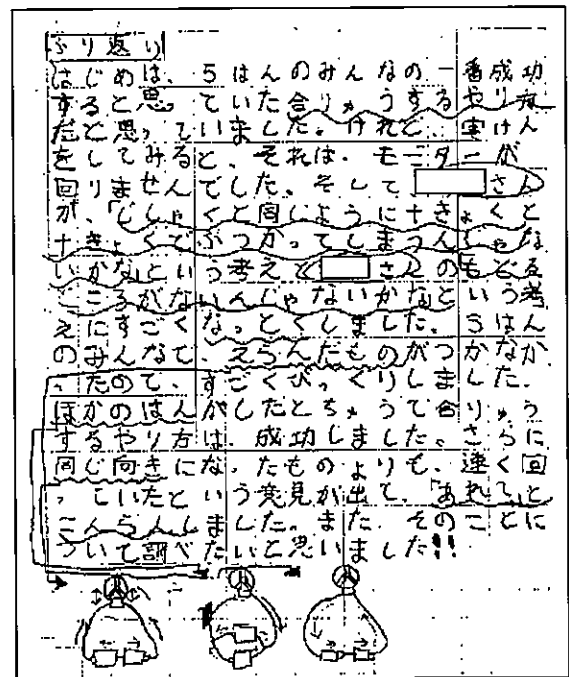 ふり返り
はじめは、5はんのみんなの一番成功
すると思っていた合りゅうするやり方
だと思っていました。けれど、実けん
をしてみると、それは、モーターが
回りませんでした。そして さん
が、「じしゃくと同じように+きょくと
+きょくでぶつかってしまうんじゃな
いかな」という考えと さんの「もどる
ところがないんじゃないかな」という考
えにすごくなっとくしました。5はん
のみんなで、えらんだものがつかなか
ったので、すごくびっくりしました。
ほかのはんがしたとちゅうで合りゅう
するやり方は、成功しました。さらに
同じ向きになったものよりも、速く回
っていたという意見が出て、「あれ?」と
こんらんしました。また、そのことに
ついて調べたいと思いました!!